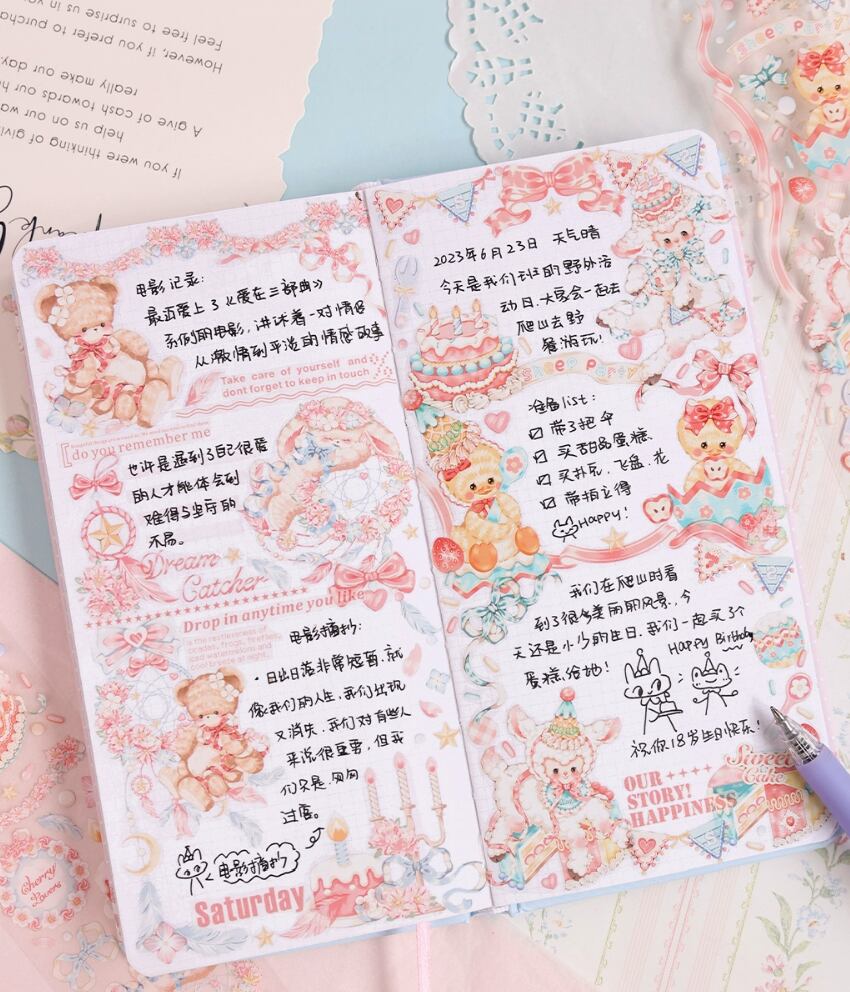 Feel free to surprise us in
However, if you prefer to purcha
really make our day.
A give of cash towards our h
help us on our wa
If you were thinking of givi
Sheep Party
电影记录:
最近爱上了《爱在三部曲》
系列的电影,讲述着一对情侣
从激情到平淡的情感故事
Take care of yourself and
dont forget to keep in touch
do you remember me
也许是遇到了自己很爱
的人才能体会到
难得与坚守的
不易。
Dream
Catcher
Drop in anytime you like
is the restlessness of
cicadas, frogs, fireflies,
iced watermelons and
cool breeze at night
电影摘抄:
·日出日落非常短暂.就
像我们的人生,我们出现
又消失,我们对有些人
来说很重要,但我
们只是.匆匆
过客。
电影摘抄
Saturday
Cherry
Lovers
2023年6月23日 天气晴
今天是我们班的野外活
动日.大家会一起去
爬山去野
餐游玩!
Sheep Party
准备list:
☑ 带了把伞
☑ 买甜品蛋糕.
☑ 买扑克,飞盘,花
☑ 带拍立得
Happy!
我们在爬山时看
到了很多美丽的风景,今
天还是小少的生日.我们一起买了个
蛋糕给她!
Happy Birthday
祝你18岁生日快乐!
OUR
STORY!
HAPPINESS
Sweet
Cake